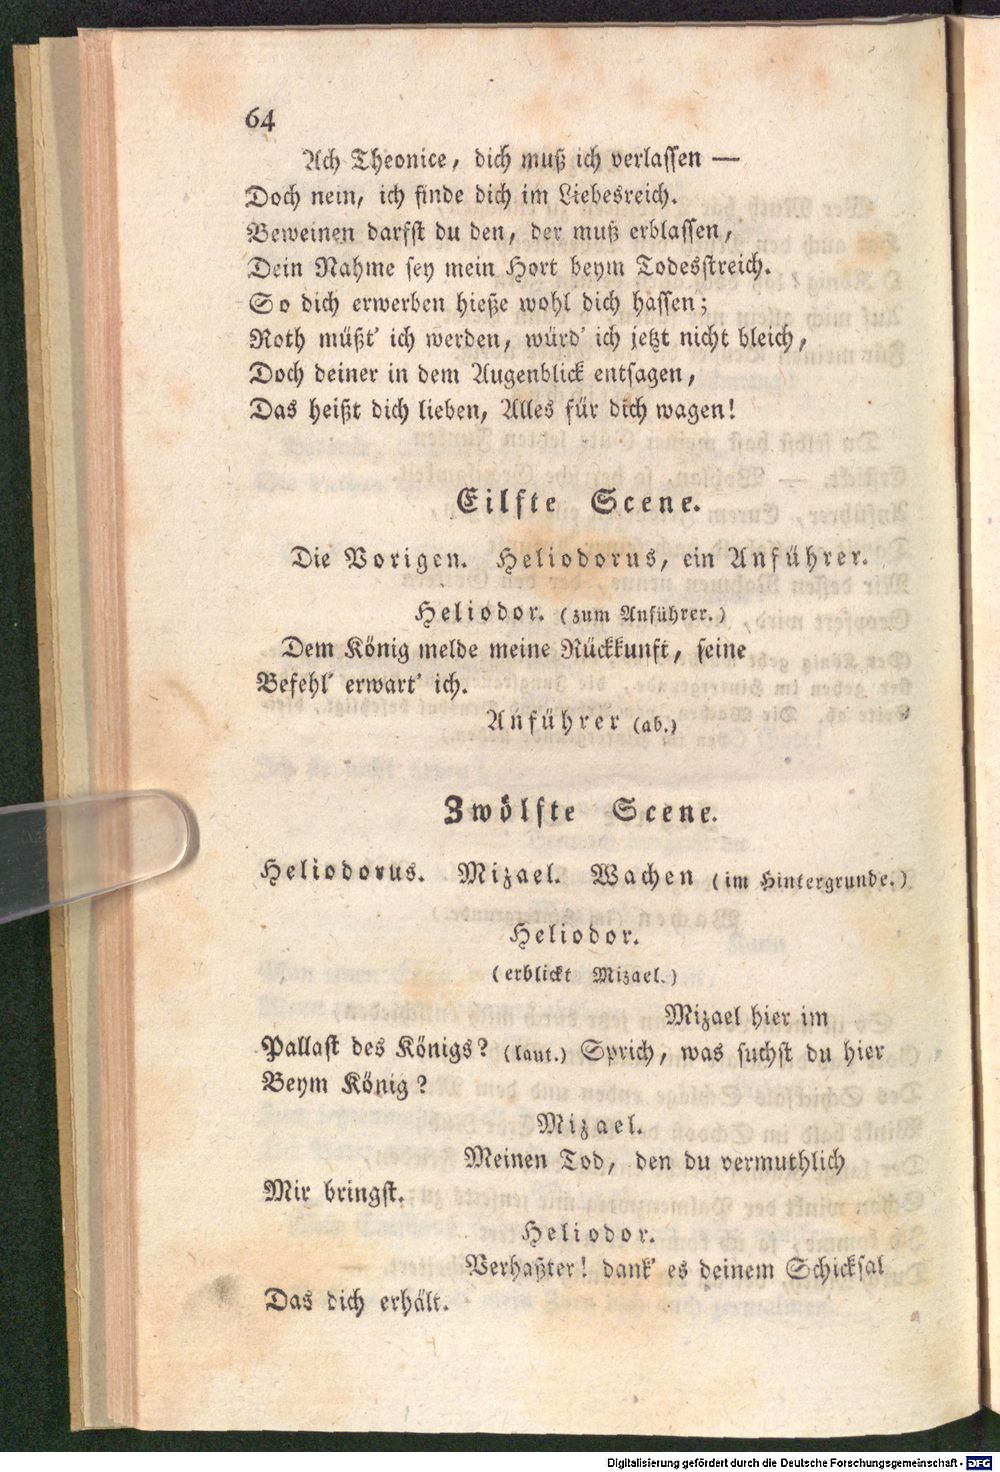 64
Ach Theonice, dich muß ich verlassen —
Doch nein, ich finde dich im Liebesreich.
Beweinen darfst du den, der muß erblassen,
Dein Nahme sey mein Hort beym Todesstreich.
So dich erwerben hieße wohl dich hassen;
Roth müßt' ich werden, würd' ich jetzt nicht bleich,
Doch deiner in dem Augenblick entsagen,
Das heißt dich lieben, Alles für dich wagen!
Eilfte Scene.
Die Vorigen. Heliodorus, ein Anführer.
Heliodor. (zum Anführer.)
Dem König melde meine Rückkunft, seine
Befehl' erwart' ich.
Anführer (ab.)
Zwölfte Scene.
Heliodorus. Mizael. Wachen (im Hintergrunde.)
Heliodor.
(erblickt Mizael.)
Mizael hier im
Pallast des Königs? (laut.) Sprich, was suchst du hier
Beym König?
Mizael.
Meinen Tod, den du vermuthlich
Mir bringst.
Heliodor.
Verhaßter! dank' es deinem Schicksal
Das dich erhält.
Digitalisierung gefördert durch die Deutsche Forschungsgemeinschaft - DFG